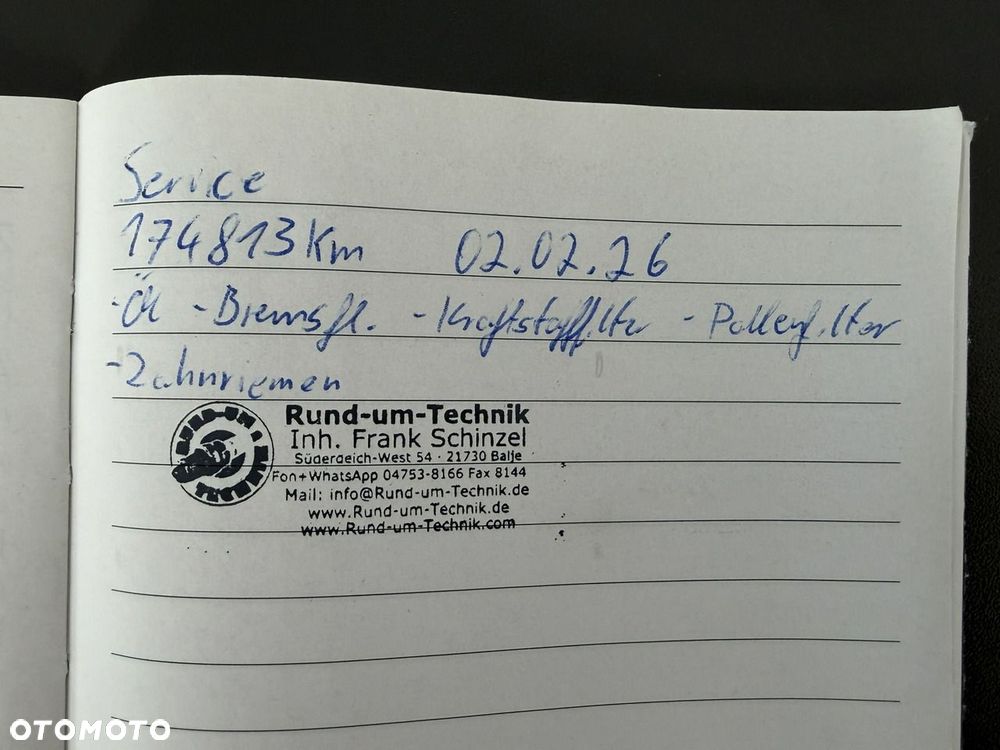 Service
174813 Km 02.02.26
- Öl - Bremsfl. - Kraftstofffilter - Pollenfilter
- Zahnriemen
RUND-UM
Rund-um-Technik
Inh. Frank Schinzel
Süderdeich-West 54 · 21730 Balje
Fon+WhatsApp 04753-8166 Fax 8144
Mail: info@Rund-um-Technik.de
www.Rund-um-Technik.de
www.Rund-um-Technik.com
OTOMOTO